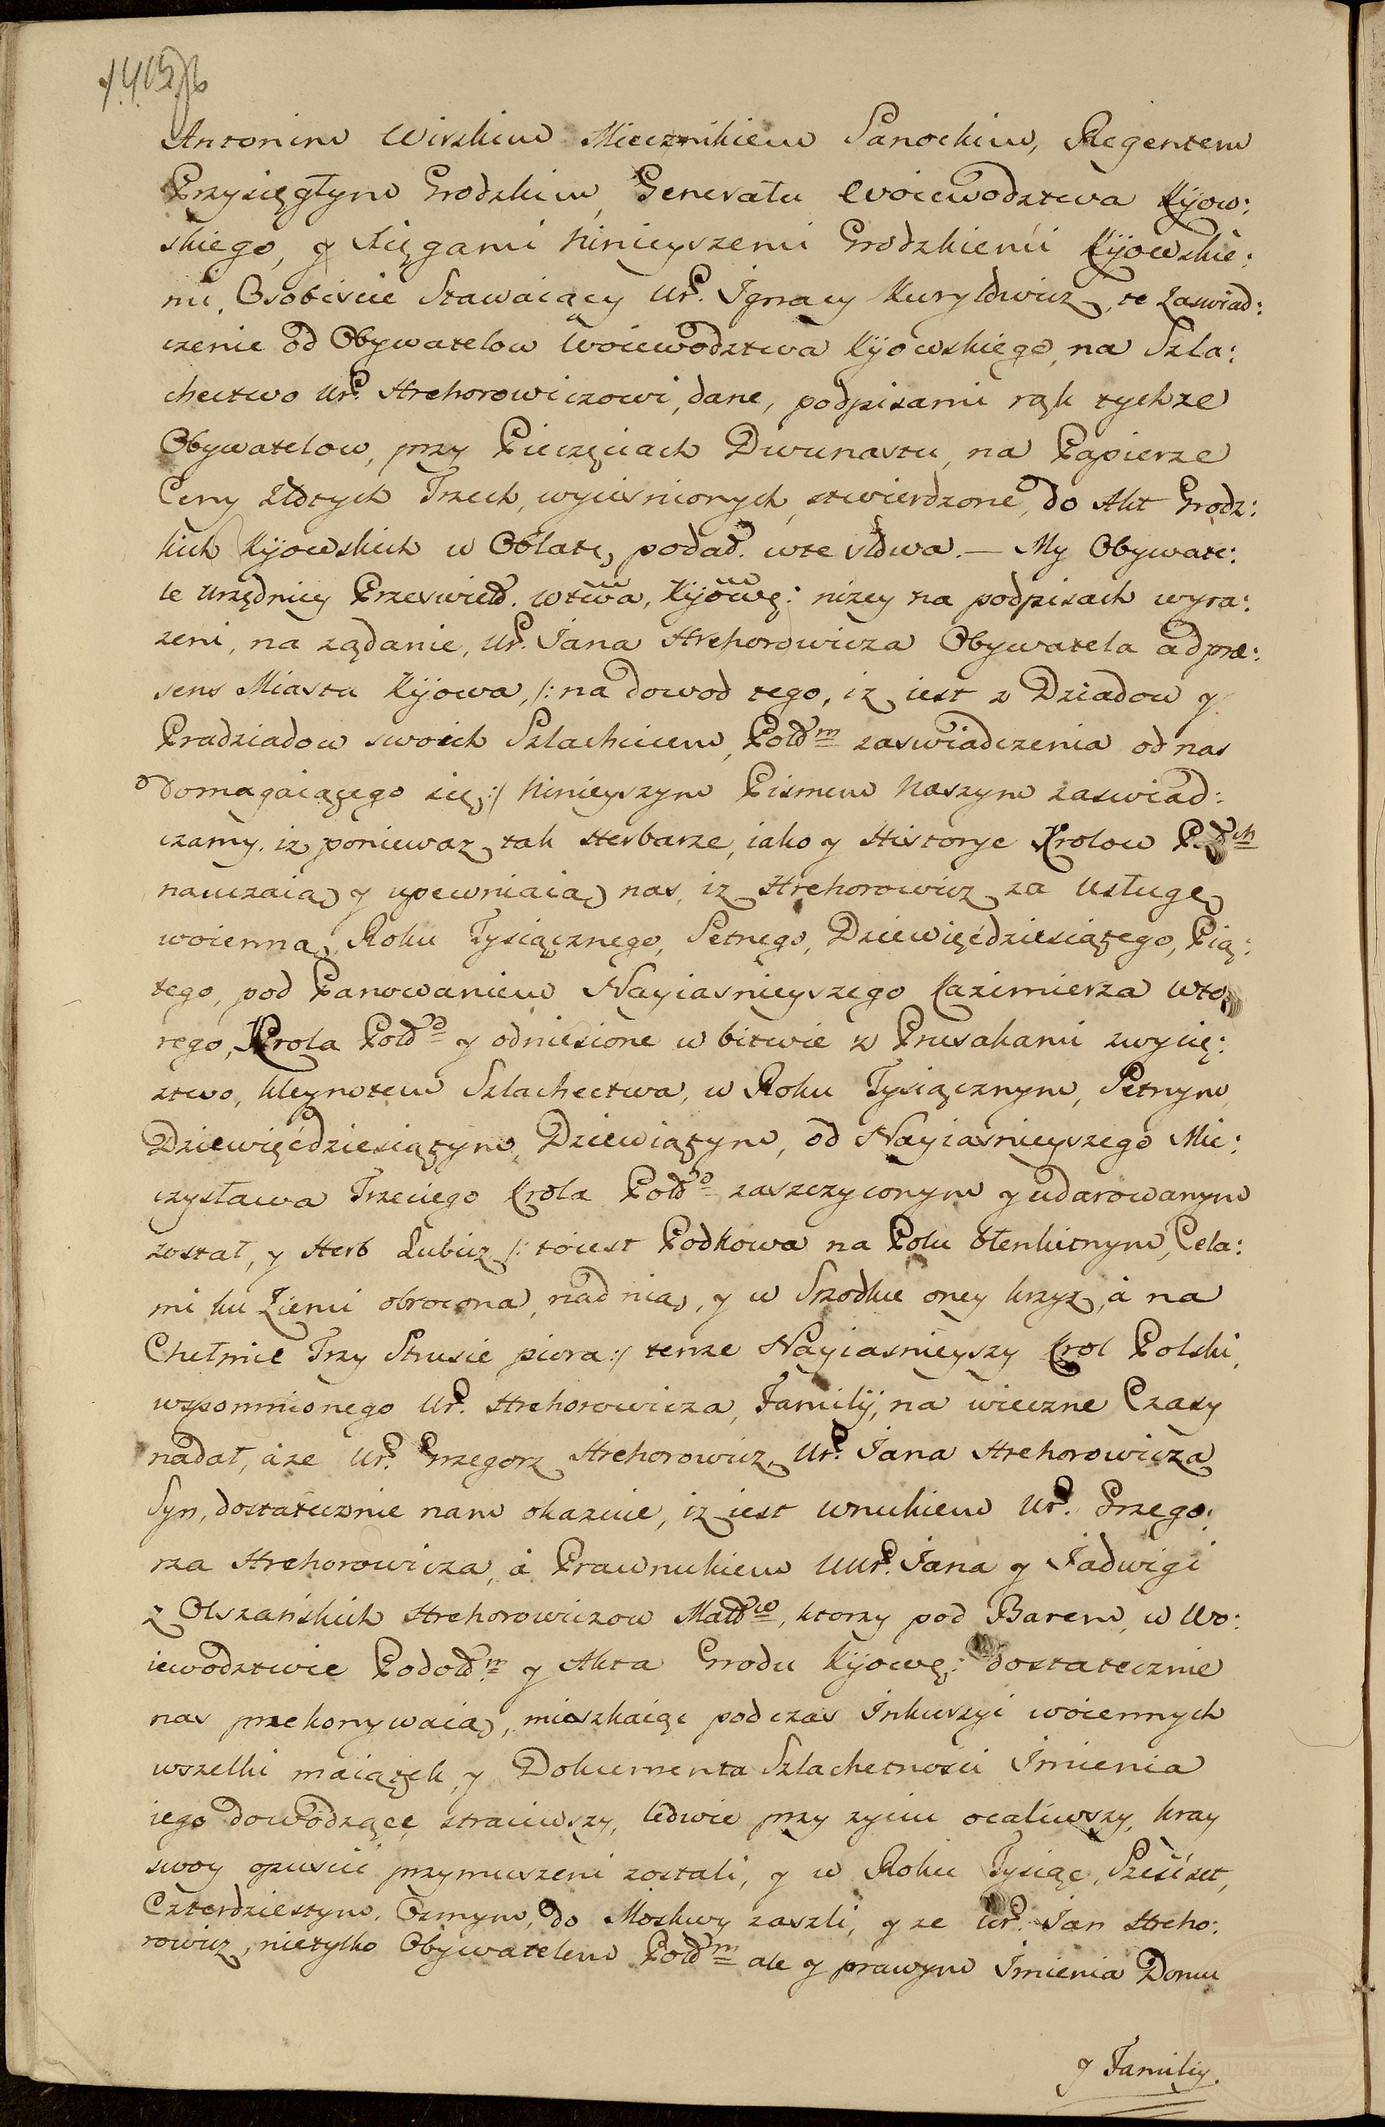 Antonim Wirskim Miecznikiem Sanockim, Regentem
Przysięgłym Grodzkim, Generału Woiewodztwa Kijow:
skiego, y Xięgami Ninieyszemi Grodzkiemi Kijowskie:
mi, Osobiscie Stawaiący Ur. Ignacy Kuryłowicz, te Zaswiad:
czenie od Obywatelow Woiewodztwa Kijowskiego na Szla:
chectwo Ur. Hrehorowiczowi, dane, podpisami rąk tychze
Obywatelow, przy Pieczęciach Dwunastu, na Papierze
Ceny Złotych Trzech, wycisnionych, stwierdzone, do Akt Grodz:
kich Kijowskich w Oblatę, podał. wte słowa. — My Obywate:
le Urzędnicy Przeswietł. wtwa, Kijowg: nizey na podpisach wyra:
zeni, na ządanie, Ur. Jana Hrehorowicza Obywatela ad præ:
sens Miasta Kijowa, /: na dowod tego, iz iest z Dziadow y
Pradziadow swoich Szlachcicem, Polm zaswiadczenia od nas
domagaiącego się :/ Ninieyszym Pismem Naszym zaswiad:
czamy. iz poniewaz tak Herbarze, iako y Historye Krolow Plch
nauczaią y upewniaią nas, iz Hrehorowicz za Usługę
woienną, Roku Tysiącznego, Setnego, Dziewięćdziesiątego, Pią:
tego, pod Panowaniem Nayiasnieyszego Kazimierza Wto
rego, Krola Polgo y odniesione w bitwie z Prusakami zwycię:
ztwo, kleynotem Szlachectwa, w Roku Tysiącznym, Setnym
Dziewięćdziesiątym, Dziewiątym, od Nayiasnieyszego Mie:
czysława Trzeciego Krola Polgo zaszczyconym y udarowanym
został, y Herb Lubicz /: toiest Podkowa na Polu błenkitnym, Cela:
mi ku Ziemi obrocona, nad nią, y w Srzodku oney krzyz, à na
Chełmie Trzy Strusie piora :/ tenze Nayiasnieyszy Krol Polski,
wspomnionego Ur. Hrehorowicza, Familij, na wieczne Czasy
nadał, à ze Ur. Grzegorz Hrehorowicz, Ur. Jana Hrehorowicza
Syn, dostatecznie nam okazuie, iz iest wnukiem Ur. Grzego:
rza Hrehorowicza, à Prawnukiem UUr. Jana y Jadwigi
z Olszańskich Hrehorowiczow Małżow, ktorzy pod Barem, w Wo:
iewodztwie Podolm y Akta Grodu Kijowg: dostatecznie
nas przekonywaią, mieszkaiąc podczas Inkurzyi woiennych
wszelki maiątek, y Dokumenta Szlachetnosci Imienia
iego dowodzące straciwszy, ledwie przy zyciu ocaliwszy, kray
swoy opuscić przymuszeni zostali, y w Roku Tysiąc, Szescset,
Czterdziestym, Osmym, do Moskwy zaszli, y ze Ur. Jan Hreho:
rowicz, nietylko Obywatelem Polm ale y prawym Imienia Domu
y Familiy.